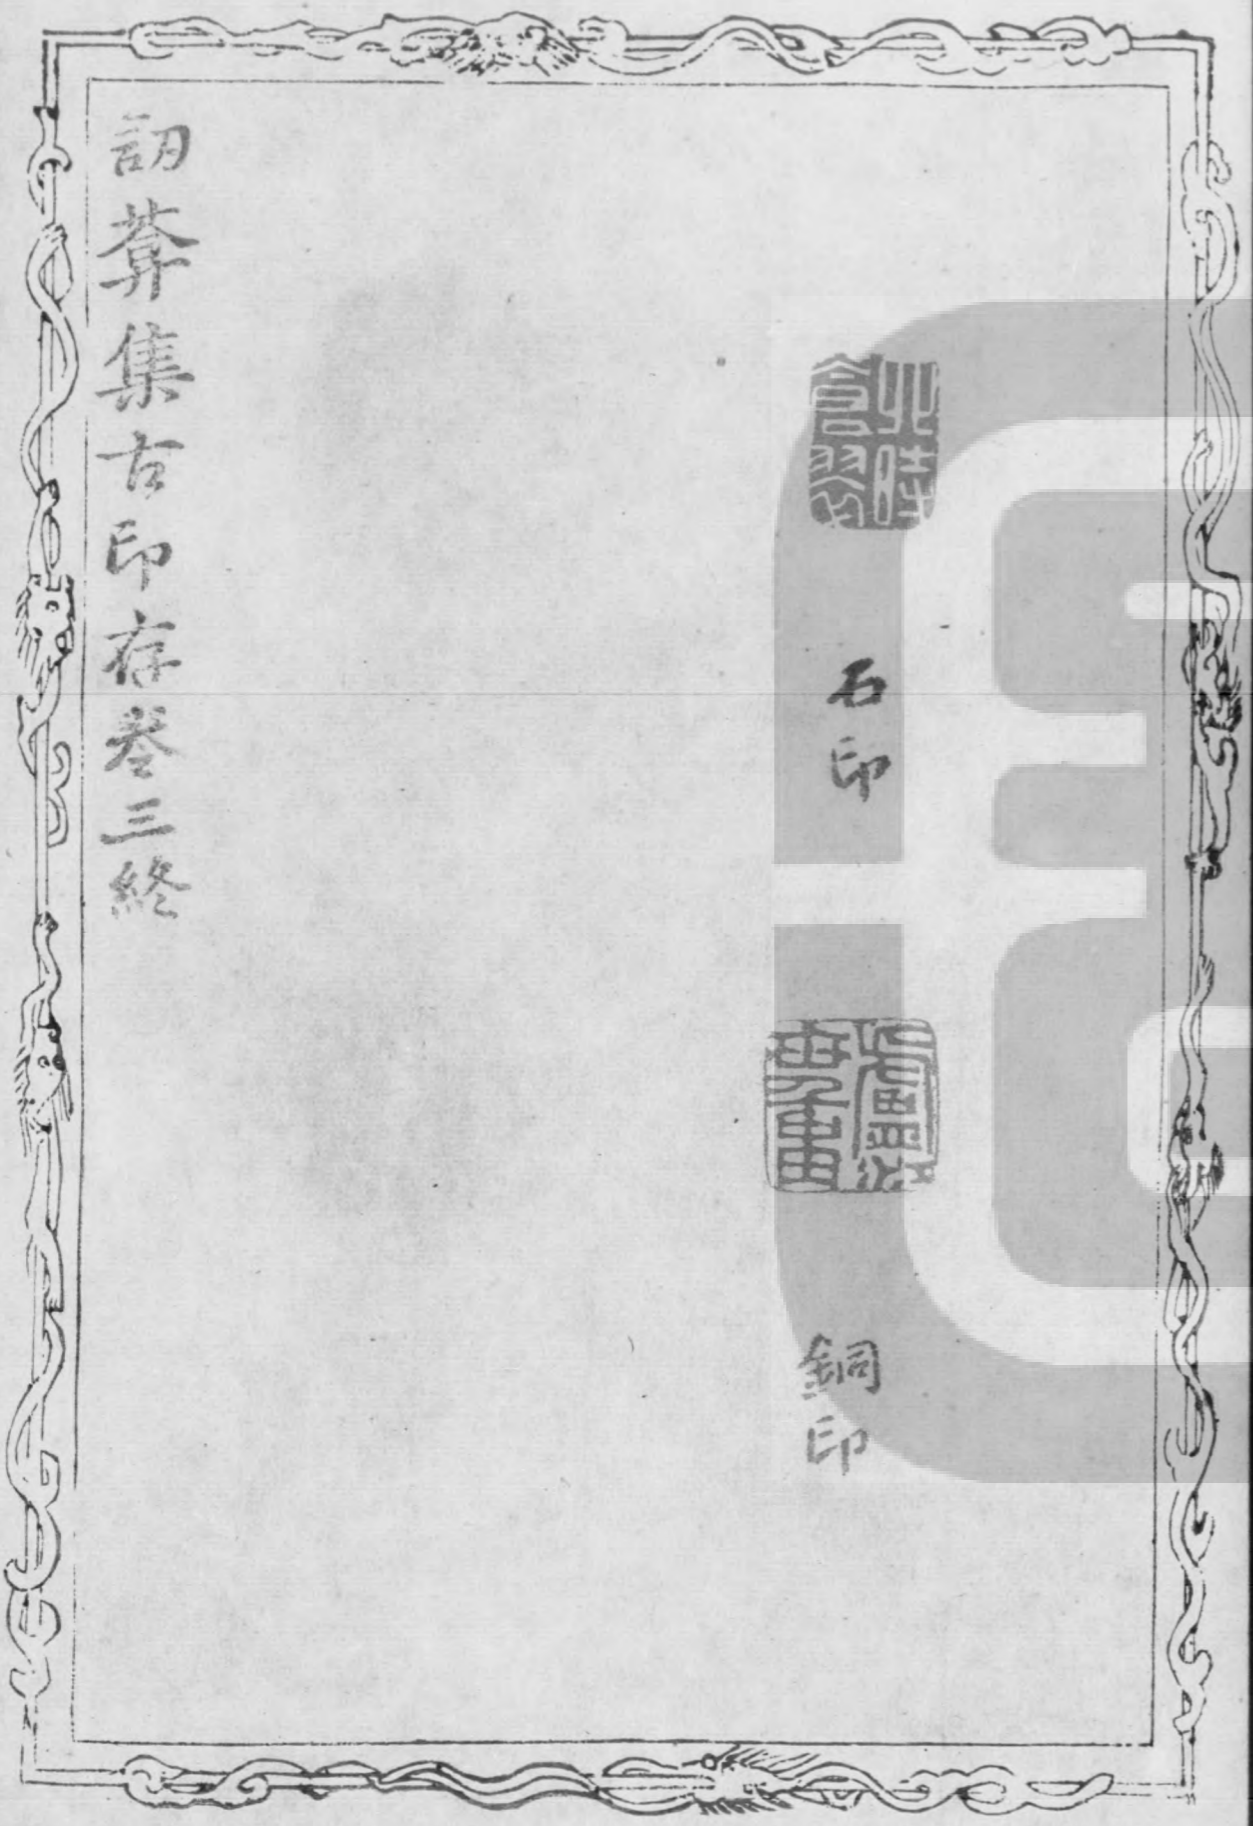 石印
銅印
訒葊集古印存卷三終